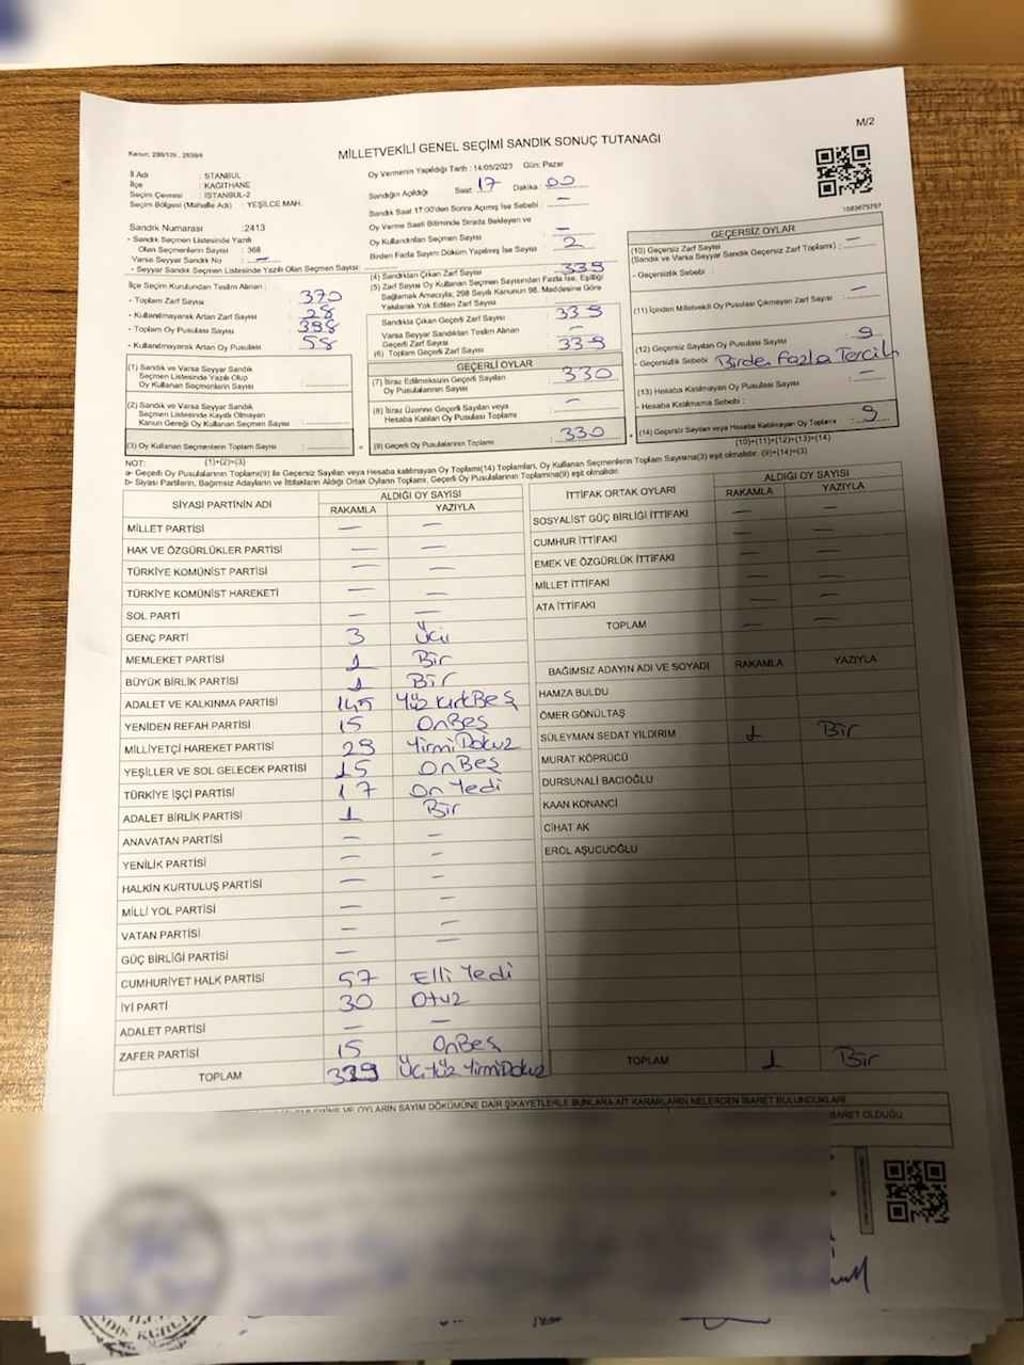 M/2
Kanun: 298/105, 2839/4
MİLLETVEKİLİ GENEL SEÇİMİ SANDIK SONUÇ TUTANAĞI
İl Adı : İSTANBUL
İlçe : KAĞITHANE
Seçim Çevresi : İSTANBUL-2
Seçim Bölgesi (Mahalle Adı) : YEŞİLCE MAH.
Oy Vermenin Yapıldığı Tarih : 14/05/2023 Gün: Pazar
Sandığın Açıldığı Saat : 17 Dakika : 00
Sandık Saat 17:00'den Sonra Açılmış İse Sebebi : —
Oy Verme Saati Bitiminde Sırada Bekleyen ve
Oy Kullandırılan Seçmen Sayısı : —
Birden Fazla Sayım Döküm Yapılmış İse Sayısı : 2
Sandık Numarası : 2413
- Sandık Seçmen Listesinde Yazılı
Olan Seçmenlerin Sayısı : 368
Varsa Seyyar Sandık No : —
- Seyyar Sandık Seçmen Listesinde Yazılı Olan Seçmen Sayısı:
İlçe Seçim Kurulundan Teslim Alınan :
- Toplam Zarf Sayısı : 370
- Kullanılmayarak Artan Zarf Sayısı : 28
- Toplam Oy Pusulası Sayısı : 398
- Kullanılmayarak Artan Oy Pusulası : 58
(1) Sandık ve Varsa Seyyar Sandık
Seçmen Listesinde Yazılı Olup
Oy Kullanan Seçmenlerin Sayısı :
(2) Sandık ve Varsa Seyyar Sandık
Seçmen Listesinde Kayıtlı Olmayan
Kanun Gereği Oy Kullanan Seçmen Sayısı :
(3) Oy Kullanan Seçmenlerin Toplam Sayısı :
(1)+(2)=(3)
(4) Sandıktan Çıkan Zarf Sayısı : 339
(5) Zarf Sayısı Oy Kullanan Seçmen Sayısından Fazla İse, Eşitliği
Sağlamak Amacıyla, 298 Sayılı Kanunun 98. Maddesine Göre
Yakılarak Yok Edilen Zarf Sayısı :
Sandıkta Çıkan Geçerli Zarf Sayısı : 339
Varsa Seyyar Sandıktan Teslim Alınan
Geçerli Zarf Sayısı : —
(6) Toplam Geçerli Zarf Sayısı : 339
GEÇERLİ OYLAR
(7) İtiraz Edilmeksizin Geçerli Sayılan
Oy Pusulalarının Sayısı : 330
(8) İtiraz Üzerine Geçerli Sayılan veya
Hesaba Katılan Oy Pusulası Toplamı : —
(9) Geçerli Oy Pusulalarının Toplamı : 330
GEÇERSİZ OYLAR
(10) Geçersiz Zarf Sayısı
(Sandık ve Varsa Seyyar Sandık Geçersiz Zarf Toplamı) : —
- Geçersizlik Sebebi :
(11) İçinden Milletvekili Oy Pusulası Çıkmayan Zarf Sayısı : —
(12) Geçersiz Sayılan Oy Pusulası Sayısı : 9
- Geçersizlik Sebebi : Birden Fazla Tercih
(13) Hesaba Katılmayan Oy Pusulası Sayısı : —
- Hesaba Katılmama Sebebi :
(14) Geçersiz Sayılan veya Hesaba Katılmayan Oy Toplamı : 9
(10)+(11)+(12)+(13)=(14)
NOT:
a- Geçerli Oy Pusulalarının Toplamı(9) ile Geçersiz Sayılan veya Hesaba katılmayan Oy Toplamı(14) Toplamları, Oy Kullanan Seçmenlerin Toplam Sayısına(3) eşit olmalıdır. (9)+(14)=(3)
b- Siyasi Partilerin, Bağımsız Adayların ve İttifakların Aldığı Ortak Oyların Toplamı, Geçerli Oy Pusulalarının Toplamına(9) eşit olmalıdır.
SİYASİ PARTİNİN ADI ALDIĞI OY SAYISI
RAKAMLA YAZIYLA
MİLLET PARTİSİ — —
HAK VE ÖZGÜRLÜKLER PARTİSİ — —
TÜRKİYE KOMÜNİST PARTİSİ — —
TÜRKİYE KOMÜNİST HAREKETİ — —
SOL PARTİ — —
GENÇ PARTİ 3 Üç
MEMLEKET PARTİSİ 1 Bir
BÜYÜK BİRLİK PARTİSİ 1 Bir
ADALET VE KALKINMA PARTİSİ 145 Yüz KırkBeş
YENİDEN REFAH PARTİSİ 15 OnBeş
MİLLİYETÇİ HAREKET PARTİSİ 29 YirmiDokuz
YEŞİLLER VE SOL GELECEK PARTİSİ 15 OnBeş
TÜRKİYE İŞÇİ PARTİSİ 17 On Yedi
ADALET BİRLİK PARTİSİ 1 Bir
ANAVATAN PARTİSİ — —
YENİLİK PARTİSİ — —
HALKIN KURTULUŞ PARTİSİ — —
MİLLİ YOL PARTİSİ — —
VATAN PARTİSİ — —
GÜÇ BİRLİĞİ PARTİSİ — —
CUMHURİYET HALK PARTİSİ 57 Elli Yedi
İYİ PARTİ 30 Otuz
ADALET PARTİSİ — —
ZAFER PARTİSİ 15 OnBeş
TOPLAM 329 ÜçYüz YirmiDokuz
İTTİFAK ORTAK OYLARI ALDIĞI OY SAYISI
RAKAMLA YAZIYLA
SOSYALİST GÜÇ BİRLİĞİ İTTİFAKI — —
CUMHUR İTTİFAKI — —
EMEK VE ÖZGÜRLÜK İTTİFAKI
MİLLET İTTİFAKI — —
ATA İTTİFAKI — —
TOPLAM — —
BAĞIMSIZ ADAYIN ADI VE SOYADI RAKAMLA YAZIYLA
HAMZA BULDU
ÖMER GÖNÜLTAŞ
SÜLEYMAN SEDAT YILDIRIM 1 Bir
MURAT KÖPRÜCÜ
DURSUNALİ BACIOĞLU
KAAN KONANCİ
CİHAT AK
EROL AŞUCUOĞLU
TOPLAM 1 Bir
VE OYLARIN SAYIM DÖKÜMÜNE DAİR ŞİKAYETLERLE BUNLARA AİT KARARLARIN NELERDEN İBARET BULUNDUKLARI
İBARET OLDUĞU